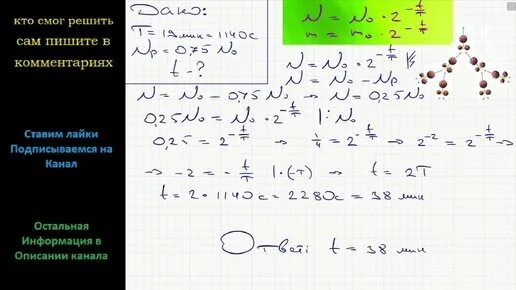 кто смог решить
сам пишите в
комментариях
Ставим лайки
Подписываемся на
Канал
Остальная
Информация в
Описании канала
Дано:
T = 19 мин = 1140 с
Nр = 0,75 N₀
t - ?
N = N₀ · 2^(-t/T)
m = m₀ · 2^(-t/T)
N = N₀ · 2^(-t/T)
N = N₀ - Nр
N = N₀ - 0,75 N₀ → N = 0,25 N₀
0,25 N₀ = N₀ · 2^(-t/T) |: N₀
0,25 = 2^(-t/T) → 1/4 = 2^(-t/T) → 2^(-2) = 2^(-t/T) →
→ -2 = -t/T | ·(-T) → t = 2T
t = 2 · 1140 с = 2280 с = 38 мин
Ответ: t = 38 мин